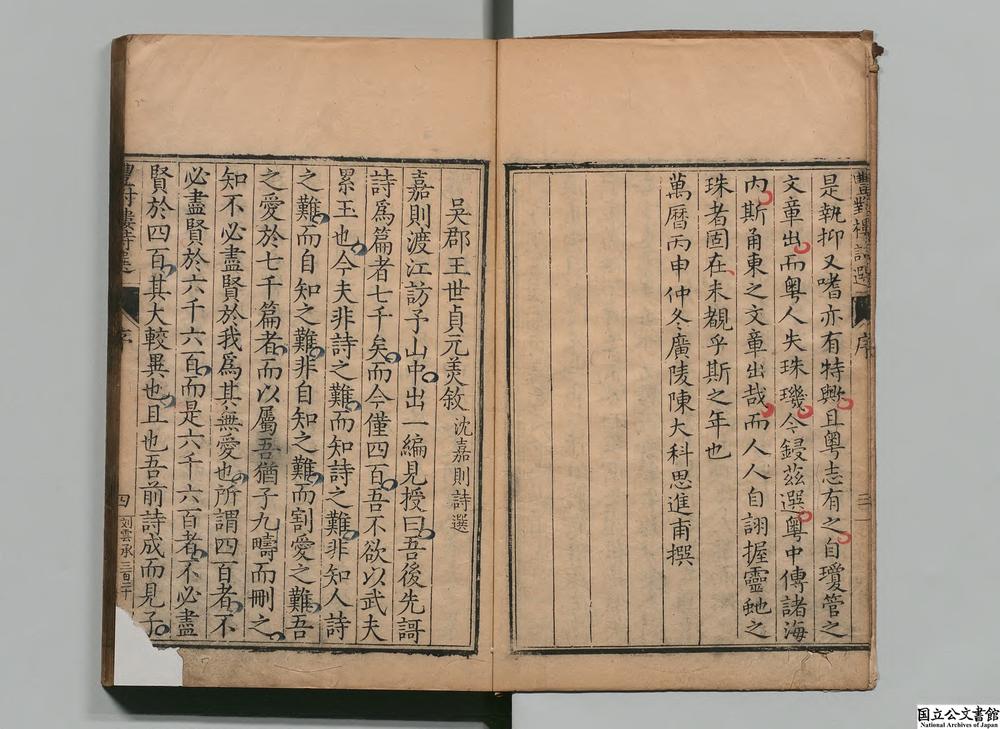 豐對樓詩選
序
三
是執抑又嗜亦有特歟且粵志有之自瓊管之
文章出而粵人失珠璣今鋟茲選粵中傳諸海
內斯甬東之文章出哉而人人自詡握靈虵之
珠者固在未覩乎斯之年也
萬曆丙申仲冬廣陵陳大科思進甫撰
吳郡王世貞元美敘 沈嘉則詩選
嘉則渡江訪予山中出一編見授曰吾後先謌
詩爲篇者七千矣而今僅四百吾不欲以武夫
累玉也今夫非詩之難而知詩之難非知人詩
之難而自知之難非自知之難而割愛之難吾
之愛於七千篇者而以屬吾猶子九疇而刪之
知不必盡賢於我爲其無愛也所謂四百者不
必盡賢於六千六百而是六千六百者不必盡
賢於四百其大較異也且也吾前詩成而見子
豐對樓詩選
序
四
刘雲承 三百二十
国立公文書館
National Archives of Japan